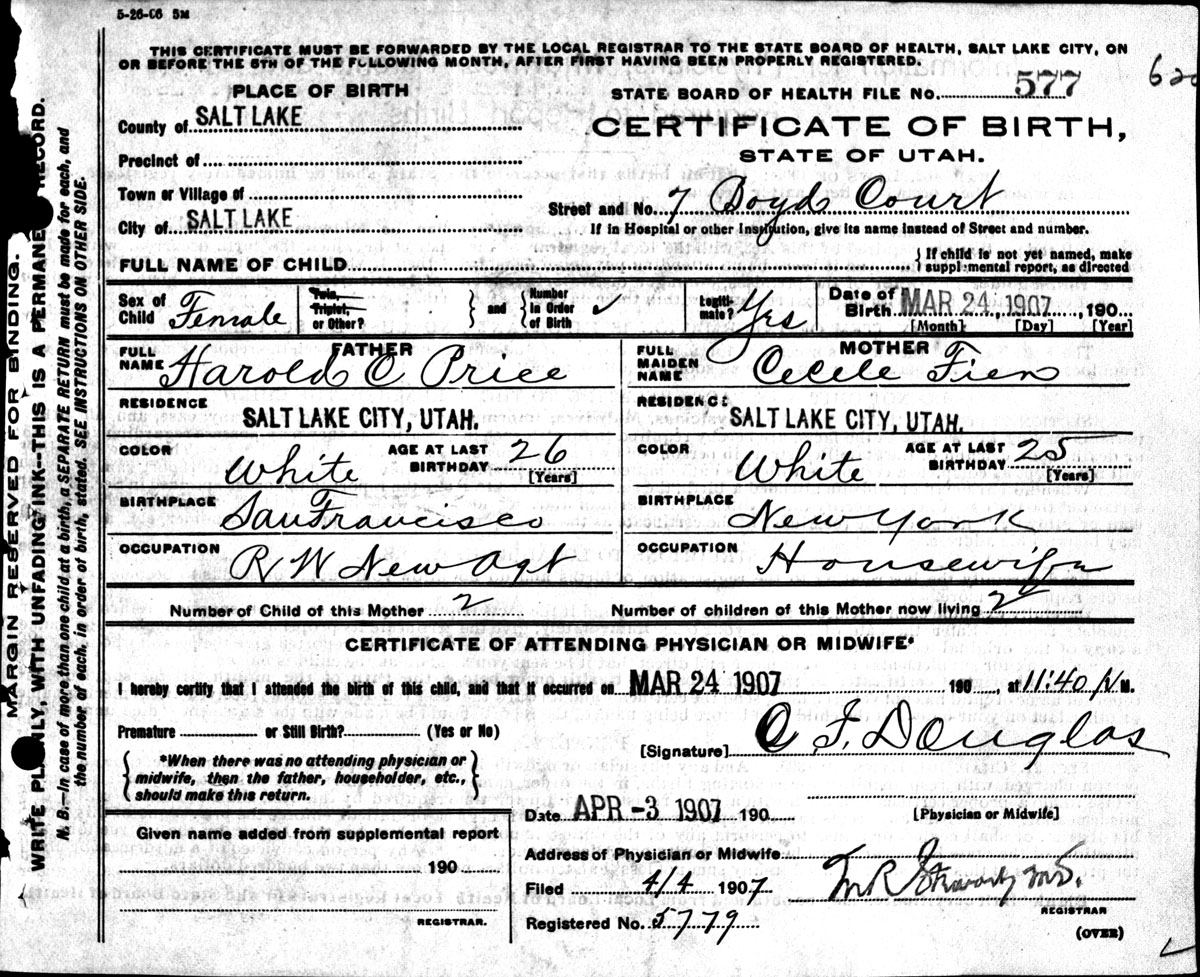 5-26-06 5M
THIS CERTIFICATE MUST BE FORWARDED BY THE LOCAL REGISTRAR TO THE STATE BOARD OF HEALTH, SALT LAKE CITY, ON
OR BEFORE THE 5TH OF THE FOLLOWING MONTH, AFTER FIRST HAVING BEEN PROPERLY REGISTERED.
PLACE OF BIRTH
STATE BOARD OF HEALTH FILE NO. 577
County of SALT LAKE
CERTIFICATE OF BIRTH,
STATE OF UTAH.
Precinct of
Town or Village of
Street and No. 7 Boyd Court
City of SALT LAKE
If in Hospital or other Institution, give its name instead of Street and number.
FULL NAME OF CHILD
If child is not yet named, make
supplemental report, as directed
Sex of Child Female
Twin, Triplet, or Other?
and
Number in Order of Birth ✓
Legiti-mate? Yes
Date of Birth MAR 24, 1907, 190
[Month] [Day] [Year]
FATHER
FULL NAME Harold C Price
MOTHER
FULL MAIDEN NAME Cecele
RESIDENCE
SALT LAKE CITY, UTAH.
RESIDENCE
SALT LAKE CITY, UTAH.
COLOR White
AGE AT LAST BIRTHDAY 26
[Years]
COLOR White
AGE AT LAST BIRTHDAY 25
[Years]
BIRTHPLACE San Francisco
BIRTHPLACE New York
OCCUPATION R W News Agt
OCCUPATION Housewife
Number of Child of this Mother 2
Number of children of this Mother now living 2
CERTIFICATE OF ATTENDING PHYSICIAN OR MIDWIFE*
I hereby certify that I attended the birth of this child, and that it occurred on MAR 24 1907 190 , at 11:40 M.
Premature or Still Birth? (Yes or No)
[Signature] C F Douglas
*When there was no attending physician or
midwife, then the father, householder, etc.,
should make this return.
Date APR -3 1907 190
[Physician or Midwife]
Given name added from supplemental report
190
REGISTRAR.
Address of Physician or Midwife
Filed 4/4 1907
M R Stewart M.D.
REGISTRAR
Registered No. 5779
(OVER)
MARGIN RESERVED FOR BINDING.
WRITE PLAINLY, WITH UNFADING INK--THIS IS A PERMANENT RECORD.
N. B.—In case of more than one child at a birth, a SEPARATE RETURN must be made for each, and
the number of each, in order of birth, stated. SEE INSTRUCTIONS ON OTHER SIDE.